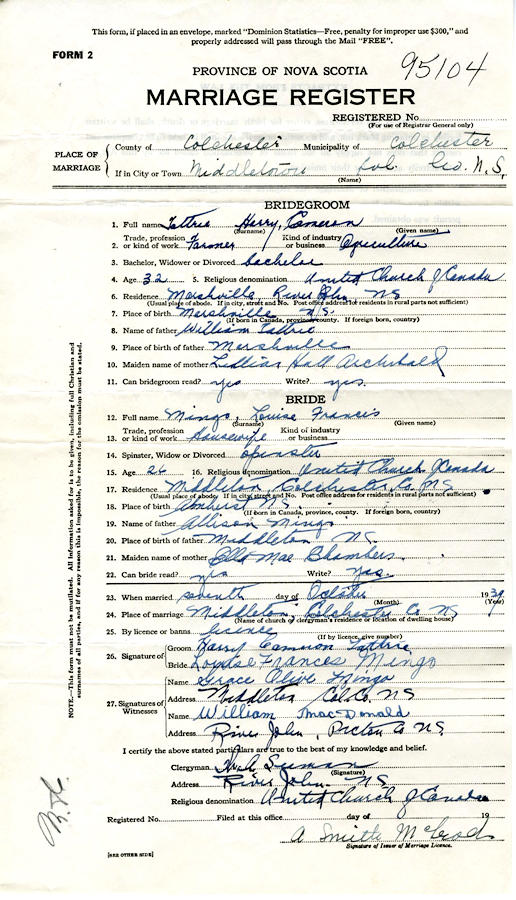 This form, if placed in an envelope, marked "Dominion Statistics—Free, penalty for improper use $300," and
properly addressed will pass through the Mail "FREE".
FORM 2
95104
PROVINCE OF NOVA SCOTIA
MARRIAGE REGISTER
REGISTERED No.
(For use of Registrar General only)
PLACE OF MARRIAGE
County of Colchester Municipality of Colchester
If in City or Town Middletown Col. Co. N.S.
(Name)
BRIDEGROOM
1. Full name Tattrie Harry, Cameron
(Surname) (Given name)
2. Trade, profession or kind of work Farmer Kind of industry or business
3. Bachelor, Widower or Divorced bachelor
4. Age 32 5. Religious denomination United Church of Canada
6. Residence Marshville River John NS
(Usual place of abode. If in city, street and No. Post office address for residents in rural parts not sufficient)
7. Place of birth Marshville N.S.
(If born in Canada, province, county. If foreign born, country)
8. Name of father William Tattrie
9. Place of birth of father Marshville
10. Maiden name of mother Lillian Hall Archibald
11. Can bridegroom read? yes Write? yes.
BRIDE
12. Full name Mingo, Louise Francis
(Surname) (Given name)
13. Trade, profession or kind of work Housewife Kind of industry or business
14. Spinster, Widow or Divorced spinster
15. Age 26 16. Religious denomination United Church of Canada
17. Residence Middleton, Colchester, Co. NS
(Usual place of abode. If in city, street and No. Post office address for residents in rural parts not sufficient)
18. Place of birth Amherst N.S.
(If born in Canada, province, county. If foreign born, country)
19. Name of father Allison Mingo
20. Place of birth of father Middleton NS.
21. Maiden name of mother Ella Mae Chambers
22. Can bride read? yes Write? yes.
23. When married seventh day of October 1939
(Month) (Year)
24. Place of marriage Middleton, Colchester Co NS
(Name of church or clergyman's residence or location of dwelling house)
25. By licence or banns licence
(If by licence, give number)
26. Signature of Groom Harry Cameron Tattrie
Bride Louise Frances Mingo
27. Signatures of Witnesses
Name Grace Olive Mingo
Address Middleton Col. Co. NS
Name William MacDonald
Address River John, Pictou Co NS.
I certify the above stated particulars are true to the best of my knowledge and belief.
Clergyman
(Signature)
Address River John. NS
Religious denomination United Church of Canada
Registered No. Filed at this office day of 19
A Smith McLeod
Signature of Issuer of Marriage Licence.
[SEE OTHER SIDE]
NOTE.—This form must not be mutilated. All information asked for is to be given, including full Christian and
surnames of all parties, and if for any reason this is impossible, the reason for the omission must be stated.